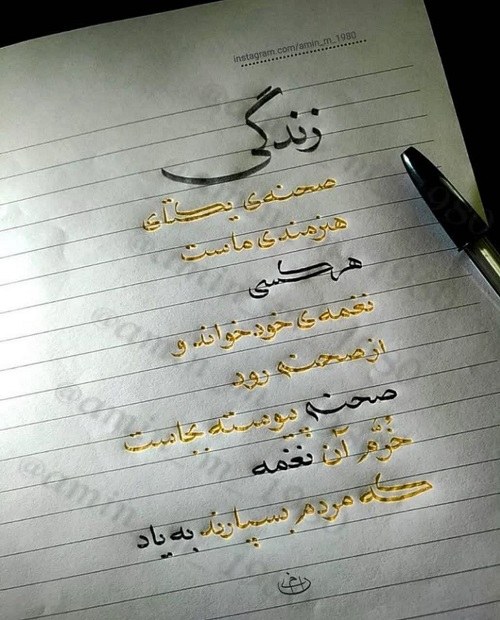 instagram.com/amin_m_1980
زندگی
صحنه‌ی یکتای
هنرمندی ماست
هر کسی
نغمه‌ی خود خواند و
از صحنه رود
صحنه پیوسته بجاست
خُرّم آن نغمه
که مردم بسپارند به یاد